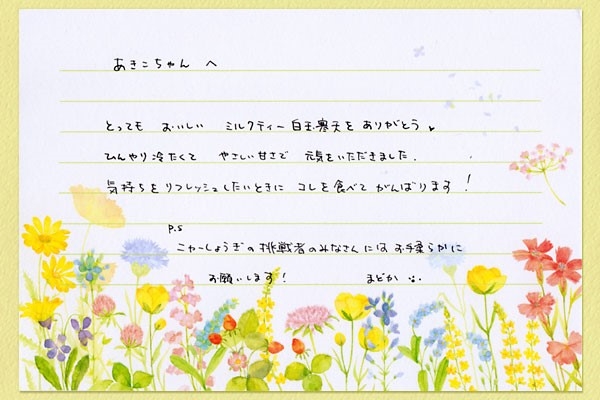 あきこちゃん へ
とっても おいしい ミルクティー白玉寒天を ありがとう
ひんやり冷たくて やさしい甘さで 元気をいただきました.
気持ちをリフレッシュしたいときに コレを食べて がんばります!
P.S
こやーしょうぎの挑戦者のみなさんには お手柔らかに
お願いします!
まどか